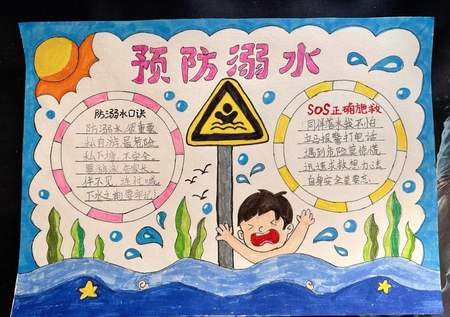 预防溺水
防溺水口诀
防溺水,很重要
私自游,是危险
私下塘,不安全
要游泳
伴不见
下水之前要牢记
SOS正确施救
同伴落水我不怕
立马报警打电话
遇到危险莫惊慌
迅速求救想办法
自身安全是要点